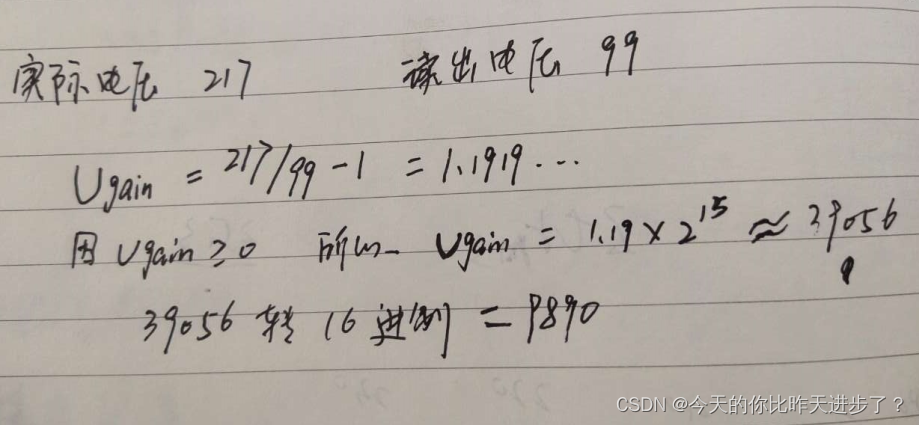 实际电压 217 读出电压 99
Ugain = 217/99 - 1 = 1.1919...
因 Ugain ≥ 0 所以 Ugain = 1.19 × 2^15 ≈ 39056
39056 转 16 进制 = 9890
CSDN @今天的你比昨天进步了？